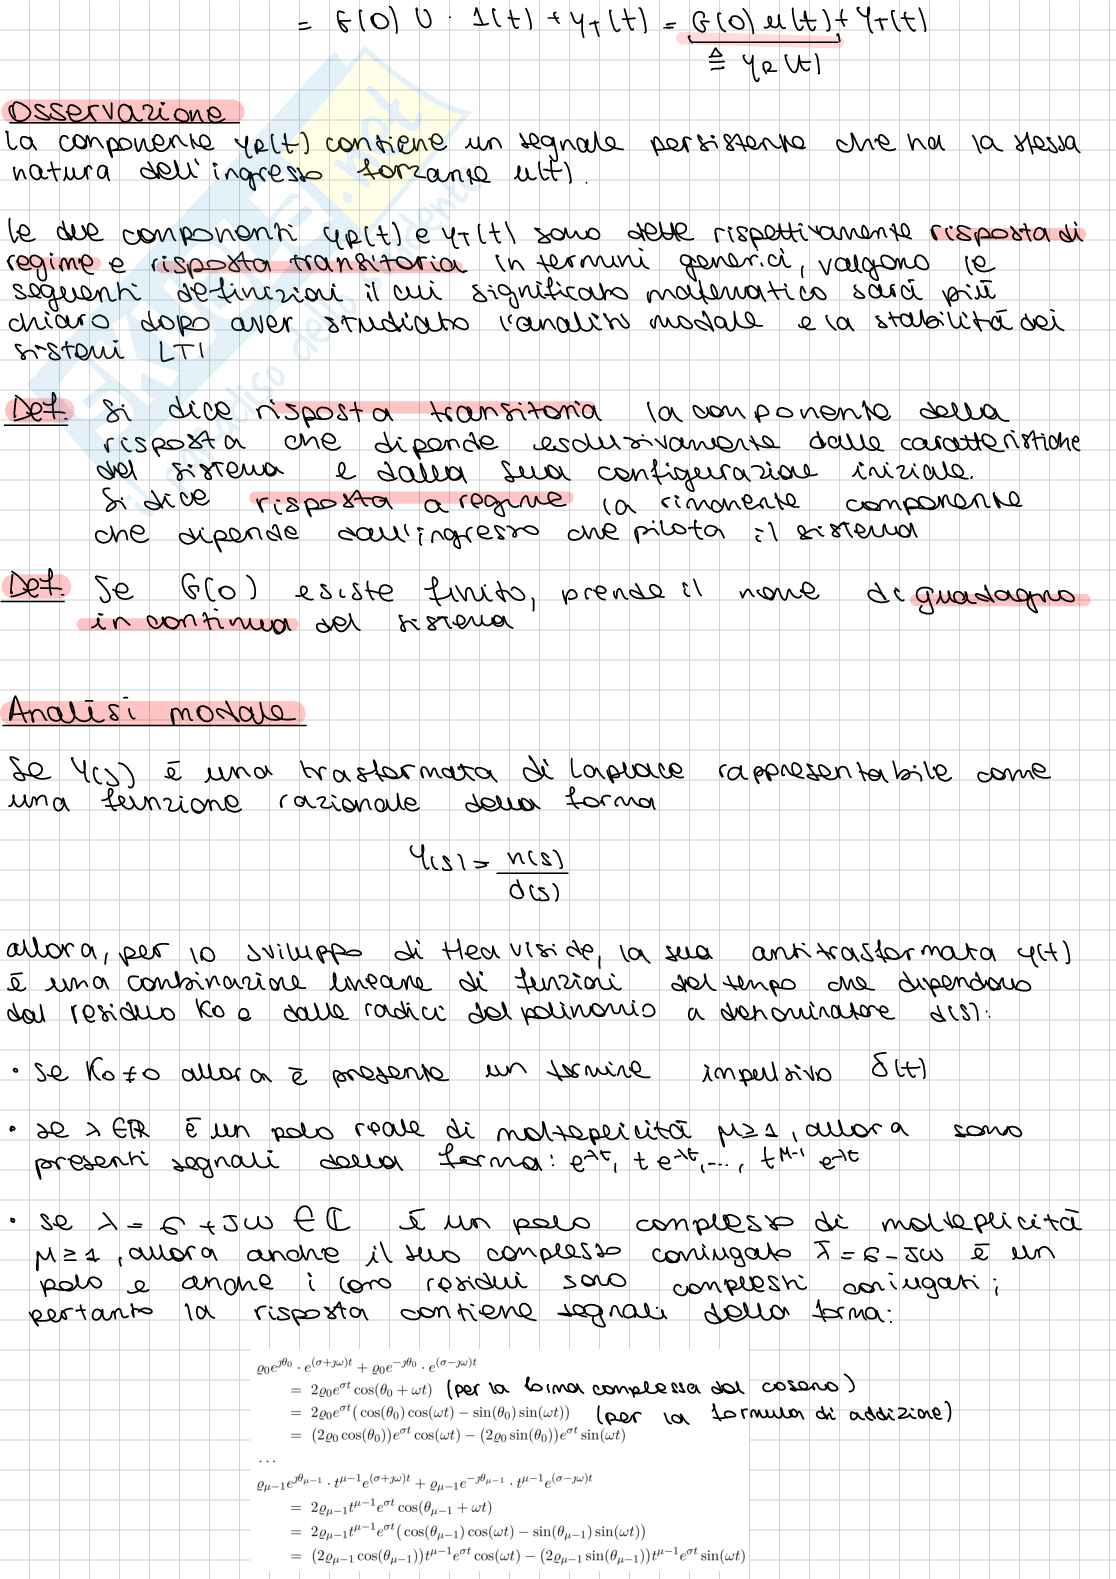 = G(0) U · 1(t) + y_T(t) = G(0) u(t) + y_T(t)
≜ y_R(t)
Osservazione
La componente y_R(t) contiene un segnale persistente che ha la stessa
natura dell'ingresso forzante u(t).
Le due componenti y_R(t) e y_T(t) sono dette rispettivamente risposta di
regime e risposta transitoria in termini generici, valgono le
seguenti definizioni il cui significato matematico sarà più
chiaro dopo aver studiato l'analisi modale e la stabilità dei
sistemi LTI
Def. Si dice risposta transitoria la componente della
risposta che dipende esclusivamente dalle caratteristiche
del sistema e dalla sua configurazione iniziale.
Si dice risposta a regime la rimanente componente
che dipende dall'ingresso che pilota il sistema
Def. Se G(0) esiste finito, prende il nome di guadagno
in continua del sistema
Analisi modale
Se Y(s) è una trasformata di Laplace rappresentabile come
una funzione razionale della forma
Y(s) = n(s)
d(s)
allora, per lo sviluppo di Heaviside, la sua antitrasformata y(t)
è una combinazione lineare di funzioni del tempo che dipendono
dal residuo K₀ e dalle radici del polinomio a denominatore d(s):
• se K₀ ≠ 0 allora è presente un termine impulsivo δ(t)
• se λ ∈ ℝ è un polo reale di molteplicità μ ≥ 1, allora sono
presenti segnali della forma: e^λt, t e^λt, ..., t^μ-1 e^λt
• se λ = σ + jω ∈ ℂ è un polo complesso di molteplicità
μ ≥ 1, allora anche il suo complesso coniugato λ̄ = σ - jω è un
polo e anche i loro residui sono complessi coniugati;
pertanto la risposta contiene segnali della forma:
ϱ₀e^{jθ₀} · e^{(σ+jω)t} + ϱ₀e^{-jθ₀} · e^{(σ-jω)t}
= 2ϱ₀e^{σt} cos(θ₀ + ωt) (per la forma complessa del coseno)
= 2ϱ₀e^{σt}(cos(θ₀) cos(ωt) − sin(θ₀) sin(ωt)) (per la formula di addizione)
= (2ϱ₀ cos(θ₀))e^{σt} cos(ωt) − (2ϱ₀ sin(θ₀))e^{σt} sin(ωt)
...
ϱ_{μ−1}e^{jθ_{μ−1}} · t^{μ−1}e^{(σ+jω)t} + ϱ_{μ−1}e^{-jθ_{μ−1}} · t^{μ−1}e^{(σ−jω)t}
= 2ϱ_{μ−1}t^{μ−1}e^{σt} cos(θ_{μ−1} + ωt)
= 2ϱ_{μ−1}t^{μ−1}e^{σt}(cos(θ_{μ−1}) cos(ωt) − sin(θ_{μ−1}) sin(ωt))
= (2ϱ_{μ−1} cos(θ_{μ−1}))t^{μ−1}e^{σt} cos(ωt) − (2ϱ_{μ−1} sin(θ_{μ−1}))t^{μ−1}e^{σt} sin(ωt)